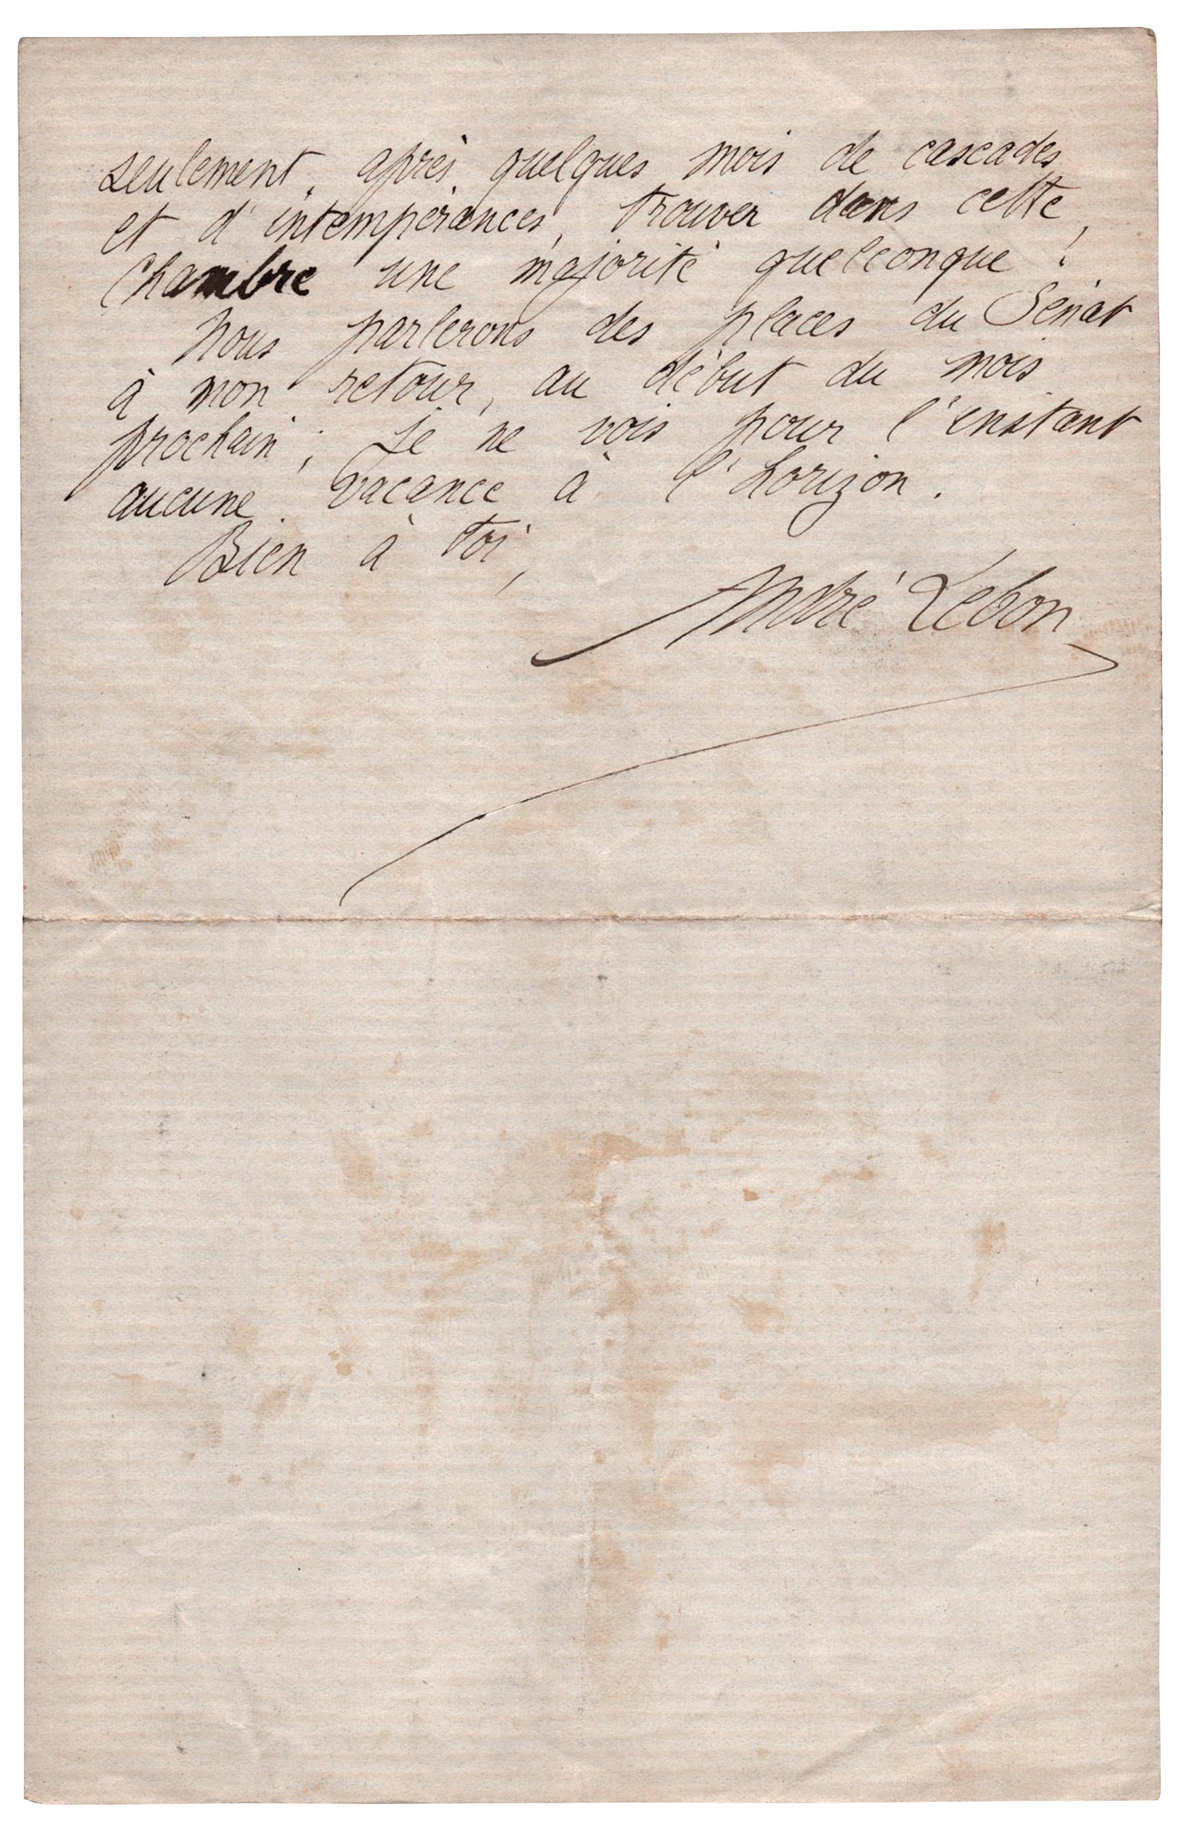 seulement, après quelques mois de cascades
et d'intempérances, trouver dans cette
Chambre une majorité quelconque !
Nous parlerons des places du Sénat
à mon retour, au début du mois
prochain ; je ne vois pour l'instant
aucune vacance à l'horizon.
Bien à toi,
André Lebon